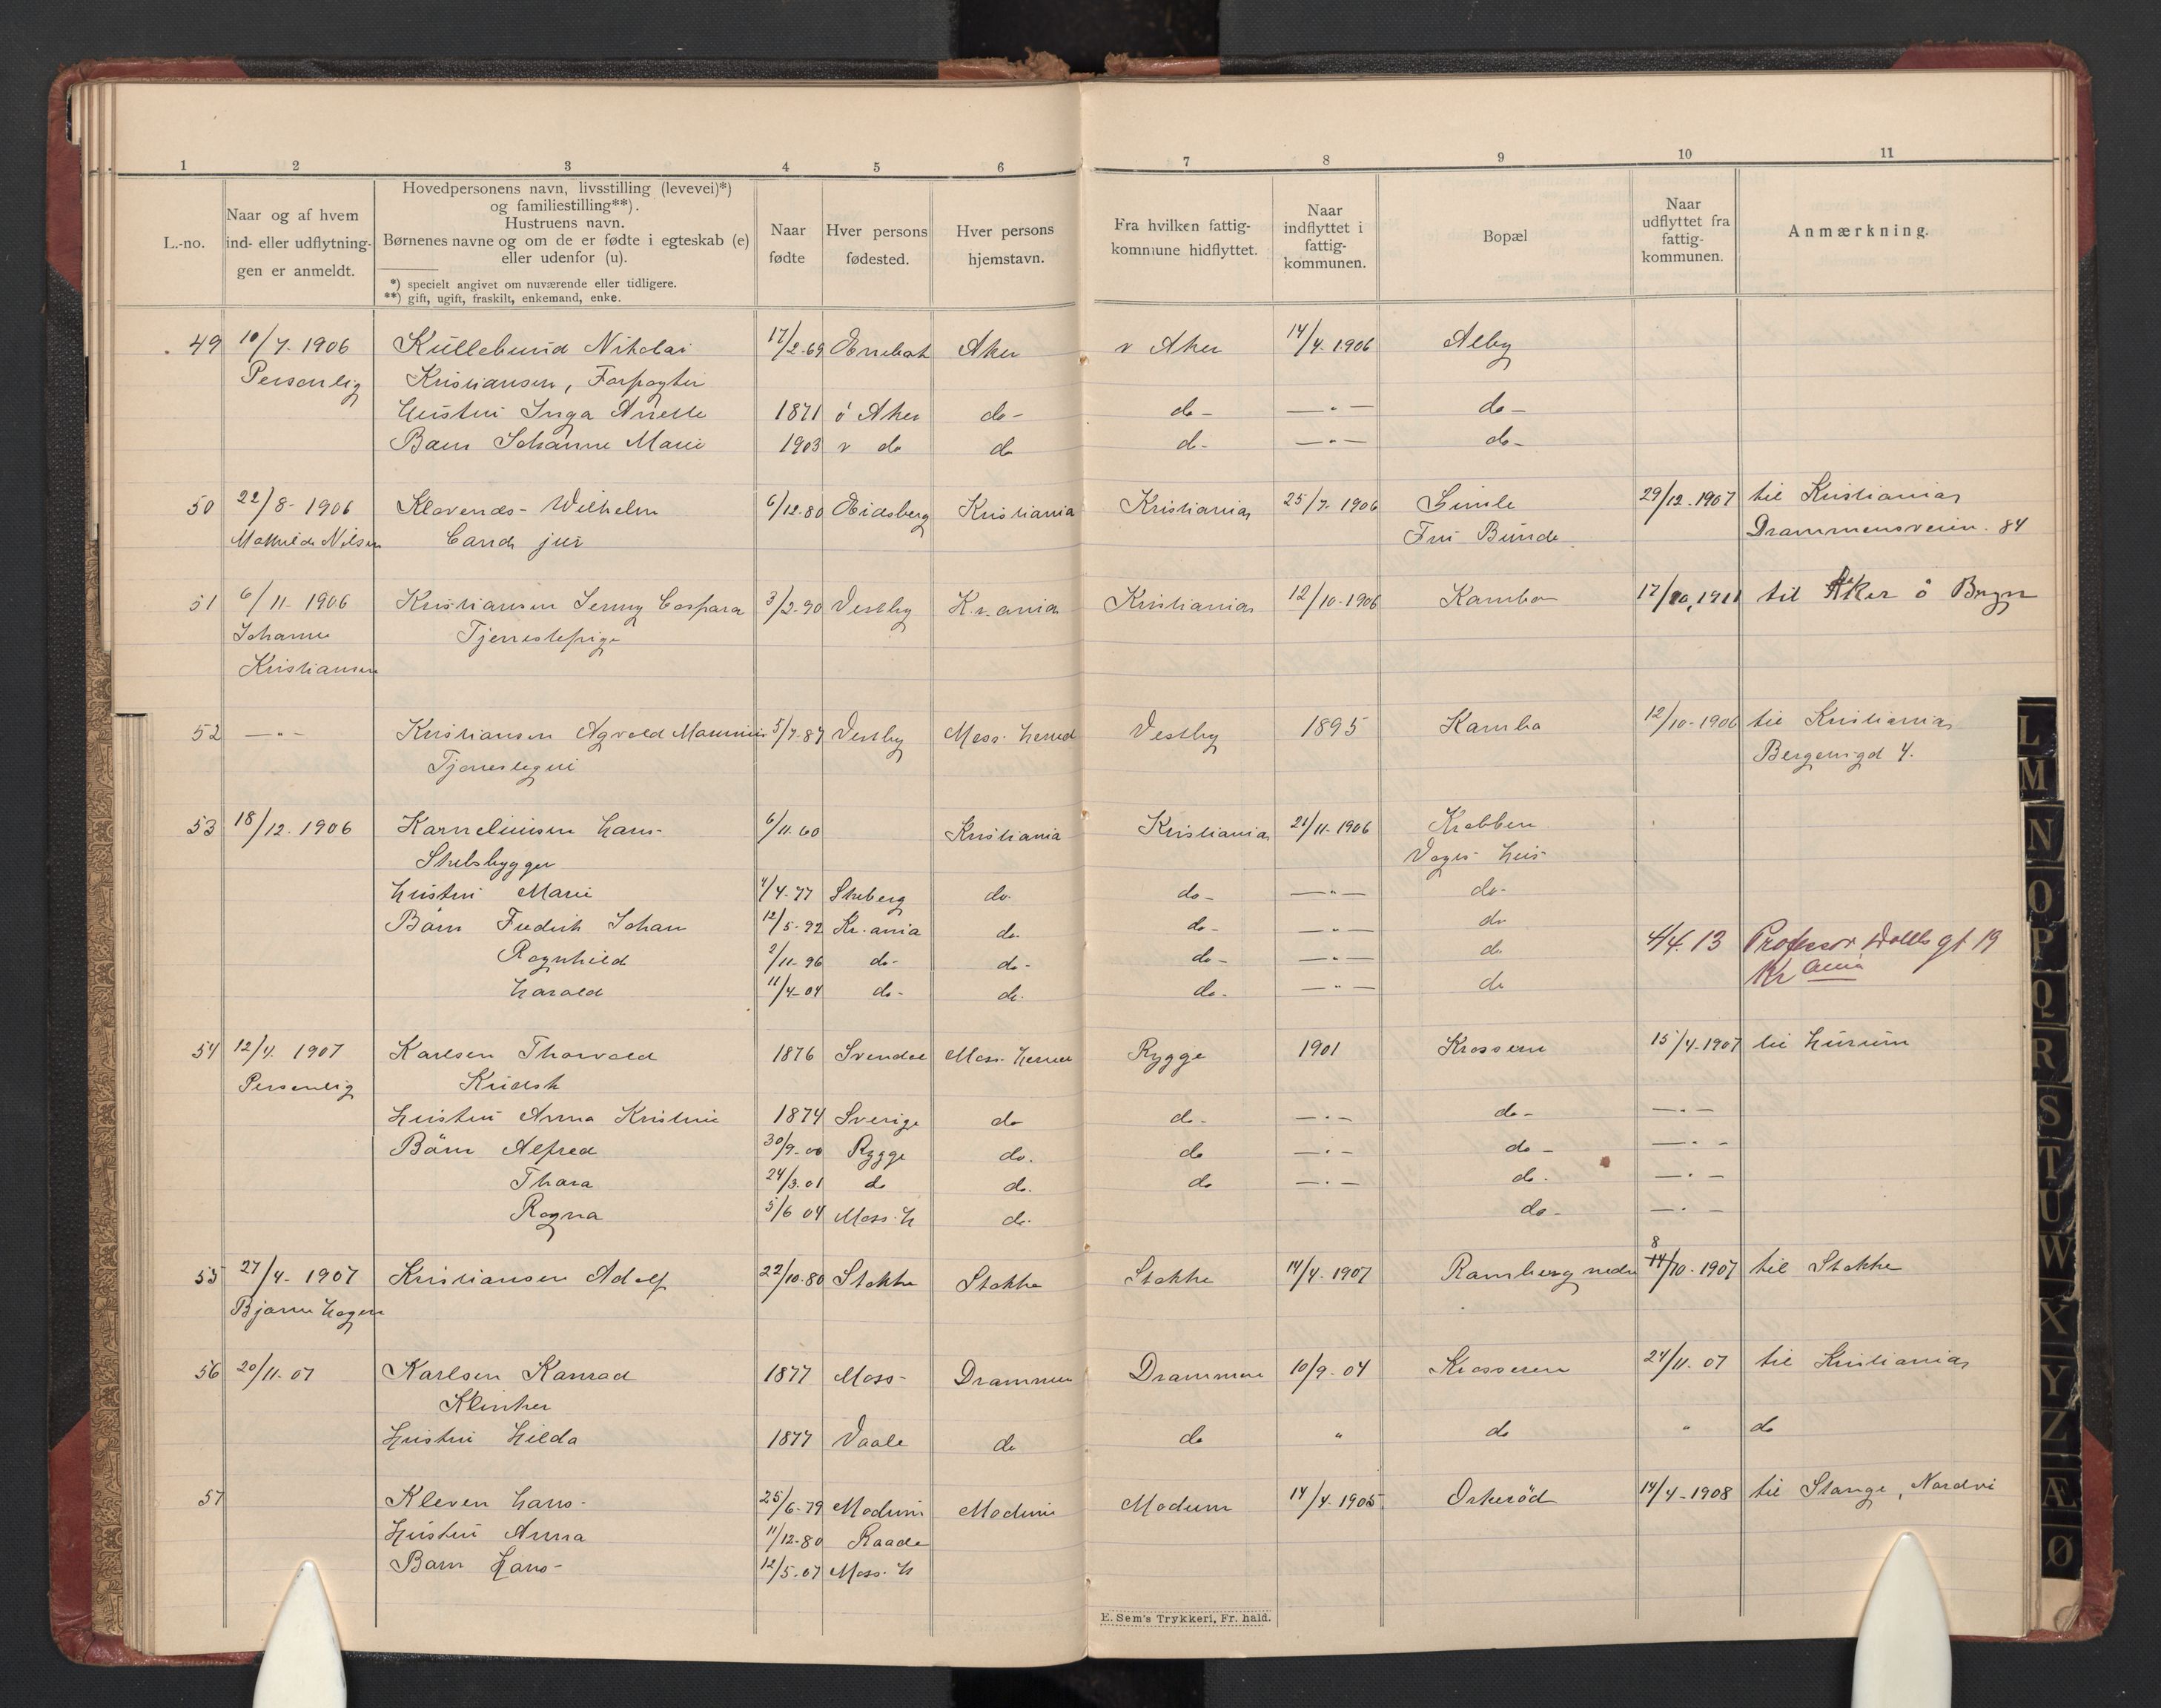 1 2 3 4 5 6 7 8 9 10 11
L.-no.
Naar og af hvem
ind- eller udflytnin-
gen er anmeldt.
Hovedpersonens navn, livsstilling (levevei)*)
og familiestilling**).
Hustruens navn.
Børnenes navne og om de er fødte i egteskab (e)
eller udenfor (u).
*) specielt angivet om nuværende eller tidligere.
**) gift, ugift, fraskilt, enkemand, enke.
Naar
fødte
Hver persons
fødested.
Hver persons
hjemstavn.
Fra hvilken fattig-
kommune hidflyttet.
Naar
indflyttet i
fattig-
kommunen.
Bopæl
Naar
udflyttet fra
fattig-
kommunen.
Anmærkning.
49 10/7-1906 Kullebund Nikolai 17/2-69 Enebak Aker v Aker 14/4-1906 Alby
Personlig Kristiansen, Forpagter
Hustru Inga Anette 1871 ö Aker do- do- —"— do-
Barn Johanne Marie 1903 v do do do- —"— do-
50 22/8-1906 Klavends- Wilhelm 6/12-80 Eidsberg Kristiania Kristiania 25/7-1906 Gimle 29/12-1907 til Kristiania
Mathilde Nilsen Cand jur Fru Bunde Drammensveien 84
51 6/11-1906 Kristiansen Jenny Caspara 3/2-90 Vestby Kr.ania Kristiania 12/10-1906 Kambo 17/10,1911 til Aker ö Bryn
Johanne Tjenestepige
Kristiansen
52 —"— Kristiansen Agvald 5/7-87 Vestby Moss Herred Vestby 1895 Kambo 12/10-1906 til Kristiania
Tjenestegut Bergensgd 4.
53 18/12-1906 Karneliusen Hans- 6/11-60 Kristiania Kristiania 21/11-1906 Krabben
Skibsbygger Vogts Hus
Hustru Marie 1/4-77 Skeberg do- do- —"— do-
Børn Fredrik Johan 12/5-92 Kr.ania do- do- —"— do
Ragnhild 2/11-96 do- do- do- —"— do 4/4.13 Professor Dahls gt 19
Kr ania
Harald 11/4-04 do- do- do- —"— do
54 12/4 1907 Karlsen Thorvald 1876 Svendal Moss Herred Rygge 1901 Krosseren 15/4-1907 til Hurum
Personlig Kudsk
Hustru Anna Kristine 1874 Sverige do do- —"— do- —"—
Børn Alfred 30/9-00 Rygge do. do —"— do- —"—
Thora 24/3.01 do do. do —"— do. —"—
Ragna 5/6 04 Moss. H do- do- —"—
55 27/4-1907 Kristiansen Adolf 22/10-80 Stokke Stokke Stokke 14/4-1907 Ramberg nedre 8/10-1907 til Stokke
Bjarne Hagen
56 20/11-07 Karlsen Konrad 1877 Moss- Drammen Drammen 10/9-04 Krosseren 24/11-07 til Kristiania
Klinker
Hustru Hilda 1877 Vaale do do " do " do
57 Kleven Hans- 25/6-79 Modum Modum Modum 14/4-1905 Orkerød 14/4-1908 til Stange, Nordvi
Hustru Anna 11/12-80 Raade
Barn Hans- 12/5-07 Moss. H
E. Sem's Trykkeri, Fr. hald.
L
M
N
O
P
Q
R
S
T
U
W
X
Y
Z
Æ
Ø